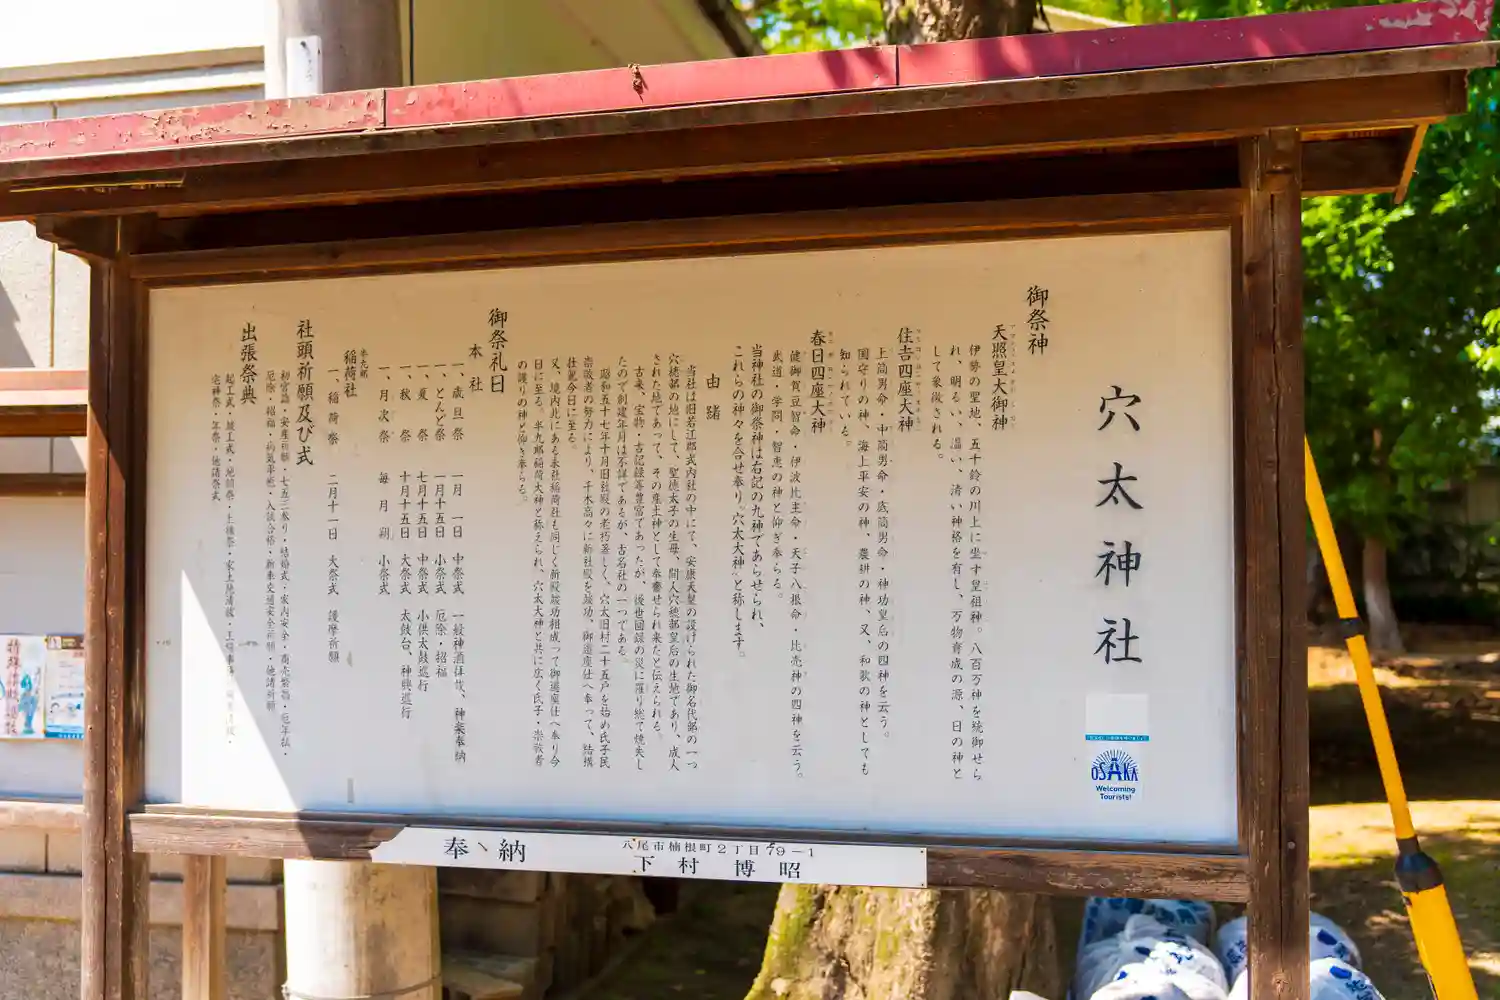 穴太神社
御祭神
天照皇大御神
伊勢の聖地、五十鈴の川上に坐す皇祖神。八百万神を統御せら
れ、明るい、温い、清い神格を有し、万物育成の源、日の神と
して象徴される。
住吉四座大神
上筒男命・中筒男命・底筒男命・神功皇后の四神を云う。
国守りの神、海上平安の神、農耕の神、又、和歌の神としても
知られている。
春日四座大神
健御賀豆智命・伊波比主命・天子八根命・比売神の四神を云う。
武道・学問・智恵の神と仰ぎ奉らる。
当神社の御祭神は右記の九神であらせられ、
これらの神々を合せ奉り"穴太大神"と称します。
由緒
当社は旧若江郡式内社の中にて、安康天皇の設けられた御名代部の一つ
穴穂部の地にして、聖徳太子の生母、間人穴穂部皇后の生地であり、成人
された地であって、その産土神として奉齋せられ来たと伝えられる。
古来、宝物・古記録等豊富であったが、後世回録の災に罹り総て焼失し
たので創建年月は不詳であるが、古名社の一つである。
昭和五十七年十月旧社殿の老朽甚しく、穴太旧村二十五戸を始め氏子民
崇敬者の努力により、千木高々に新社殿を竣功、御遷座仕へ奉って、結構
社観今日に至る。
又、境内北にある末社稲荷社も同じく新殿竣功相成って御遷座仕へ奉り今
日に至る。半九郎稲荷大神と称えられ、穴太大神と共に広く氏子・崇敬者
の護りの神と仰ぎ奉らる。
御祭礼日
本社
一、歳旦祭 一月一日 中祭式 一般神酒拝戴、神楽奉納
一、とんど祭 一月十五日 小祭式 厄除・招福
一、夏祭 七月十五日 中祭式 小供太鼓巡行
一、秋祭 十月十五日 大祭式 太鼓台、神輿巡行
一、月次祭 毎月朔 小祭式
半九郎
稲荷社
一、稲荷祭 二月十一日 大祭式 護摩祈願
社頭祈願及び式
初宮詣・安産祈願・七五三参り・結婚式・家内安全・商売繁昌・厄年祓・
厄除・招福・病気平癒・入試合格・新車交通安全祈願・他諸祈願
出張祭典
起工式・竣工式・地鎮祭・上棟祭・家土地清祓・
宅神祭・年祭・他諸祭式
OSAKA
Welcoming
Tourists!
奉納
八尾市楠根町2丁目79-1
下村博昭